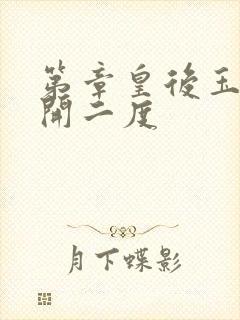 第章皇後玉
開二度
月下蝶影